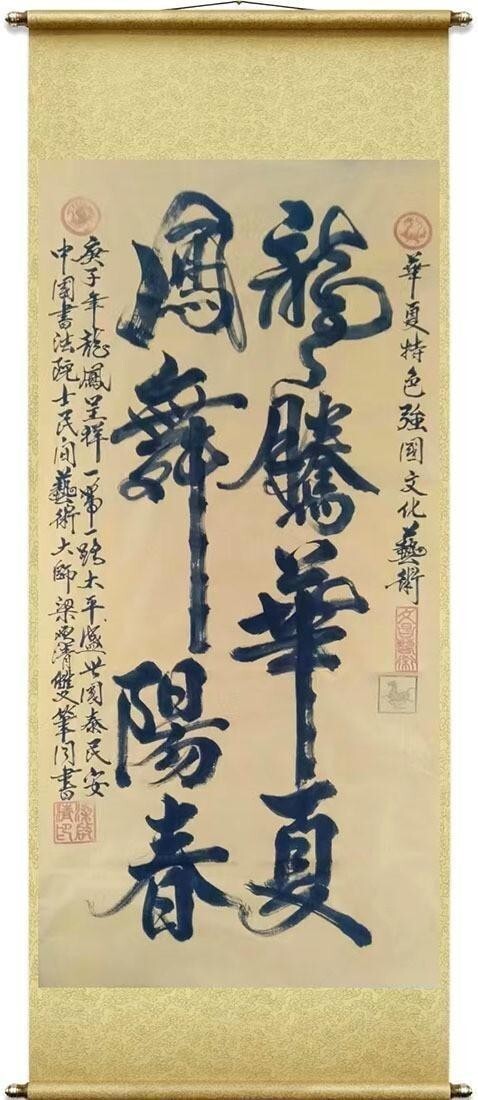 華夏特色強國文化藝術
龍騰華夏
鳳舞陽春
庚子年龍鳳呈祥一帶一路太平盛世國泰民安
中國書法院士民间藝術大師梁雙筆同書